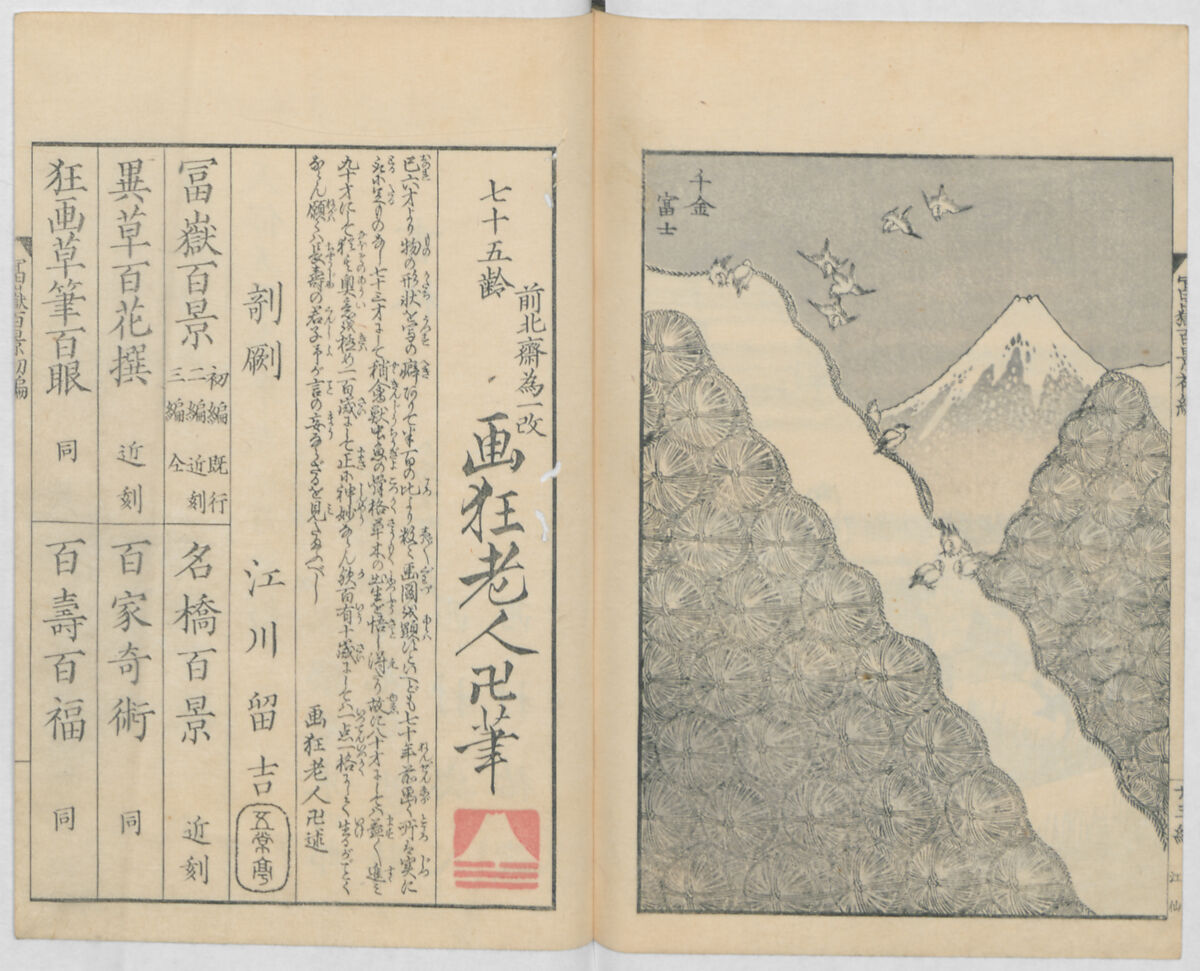 千金
富士
七十五齢
前北斎為一改
画狂老人卍筆
己六才より物の形状を写の癖ありて半百の比より数々画図を顕すといへども七十年前画く所は実に
取に足ものなし七十三才にして稍禽獣虫魚の骨格草木の出生を悟し得たり故に八十才にしては益々進み
九十才にして猶其奥意を極め一百歳にして正に神妙ならん歟百有十歳にしては一点一格にして生るがごとく
ならん願くは長寿の君子予が言の妄ならざるを見たまふべし
画狂老人卍述
剞劂
江川留吉
五常亭
冨嶽百景
初編 既行
二編 近刻
三編 仝
名橋百景 近刻
異草百花撰 近刻
百家奇術 同
狂画草筆百眼 同
百壽百福 同
冨嶽百景初編